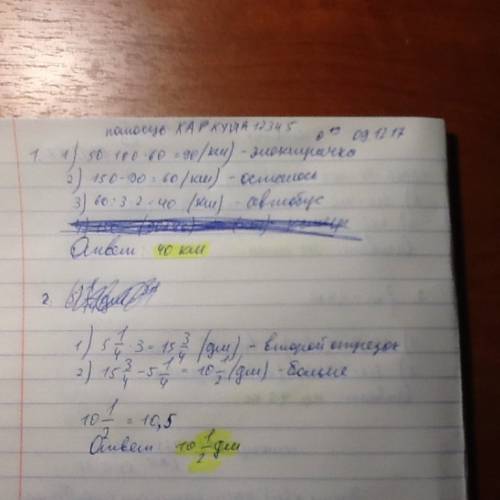 помощь КАРКУША12345 от 09.12.17
1. 1) 50:100·60=90 (км) - электричка
2) 150-90=60 (км) - осталось
3) 60:3·2=40 (км) - автобус
Ответ: 40 км
2.
1) 5 1/4 · 3 = 15 3/4 (дм) - второй отрезок
2) 15 3/4 - 5 1/4 = 10 1/2 (дм) - больше
10 1/2 = 10,5
Ответ 10 1/2 дм